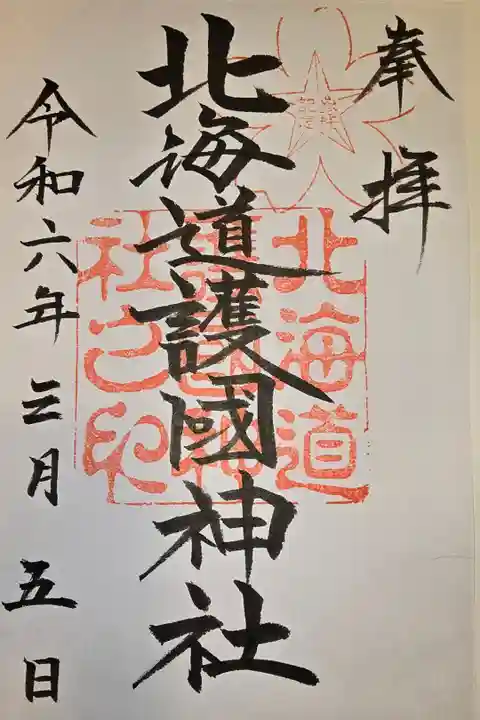 奉拝
北海道護國神社
北海道
護國神
社之印
令和六年三月五日